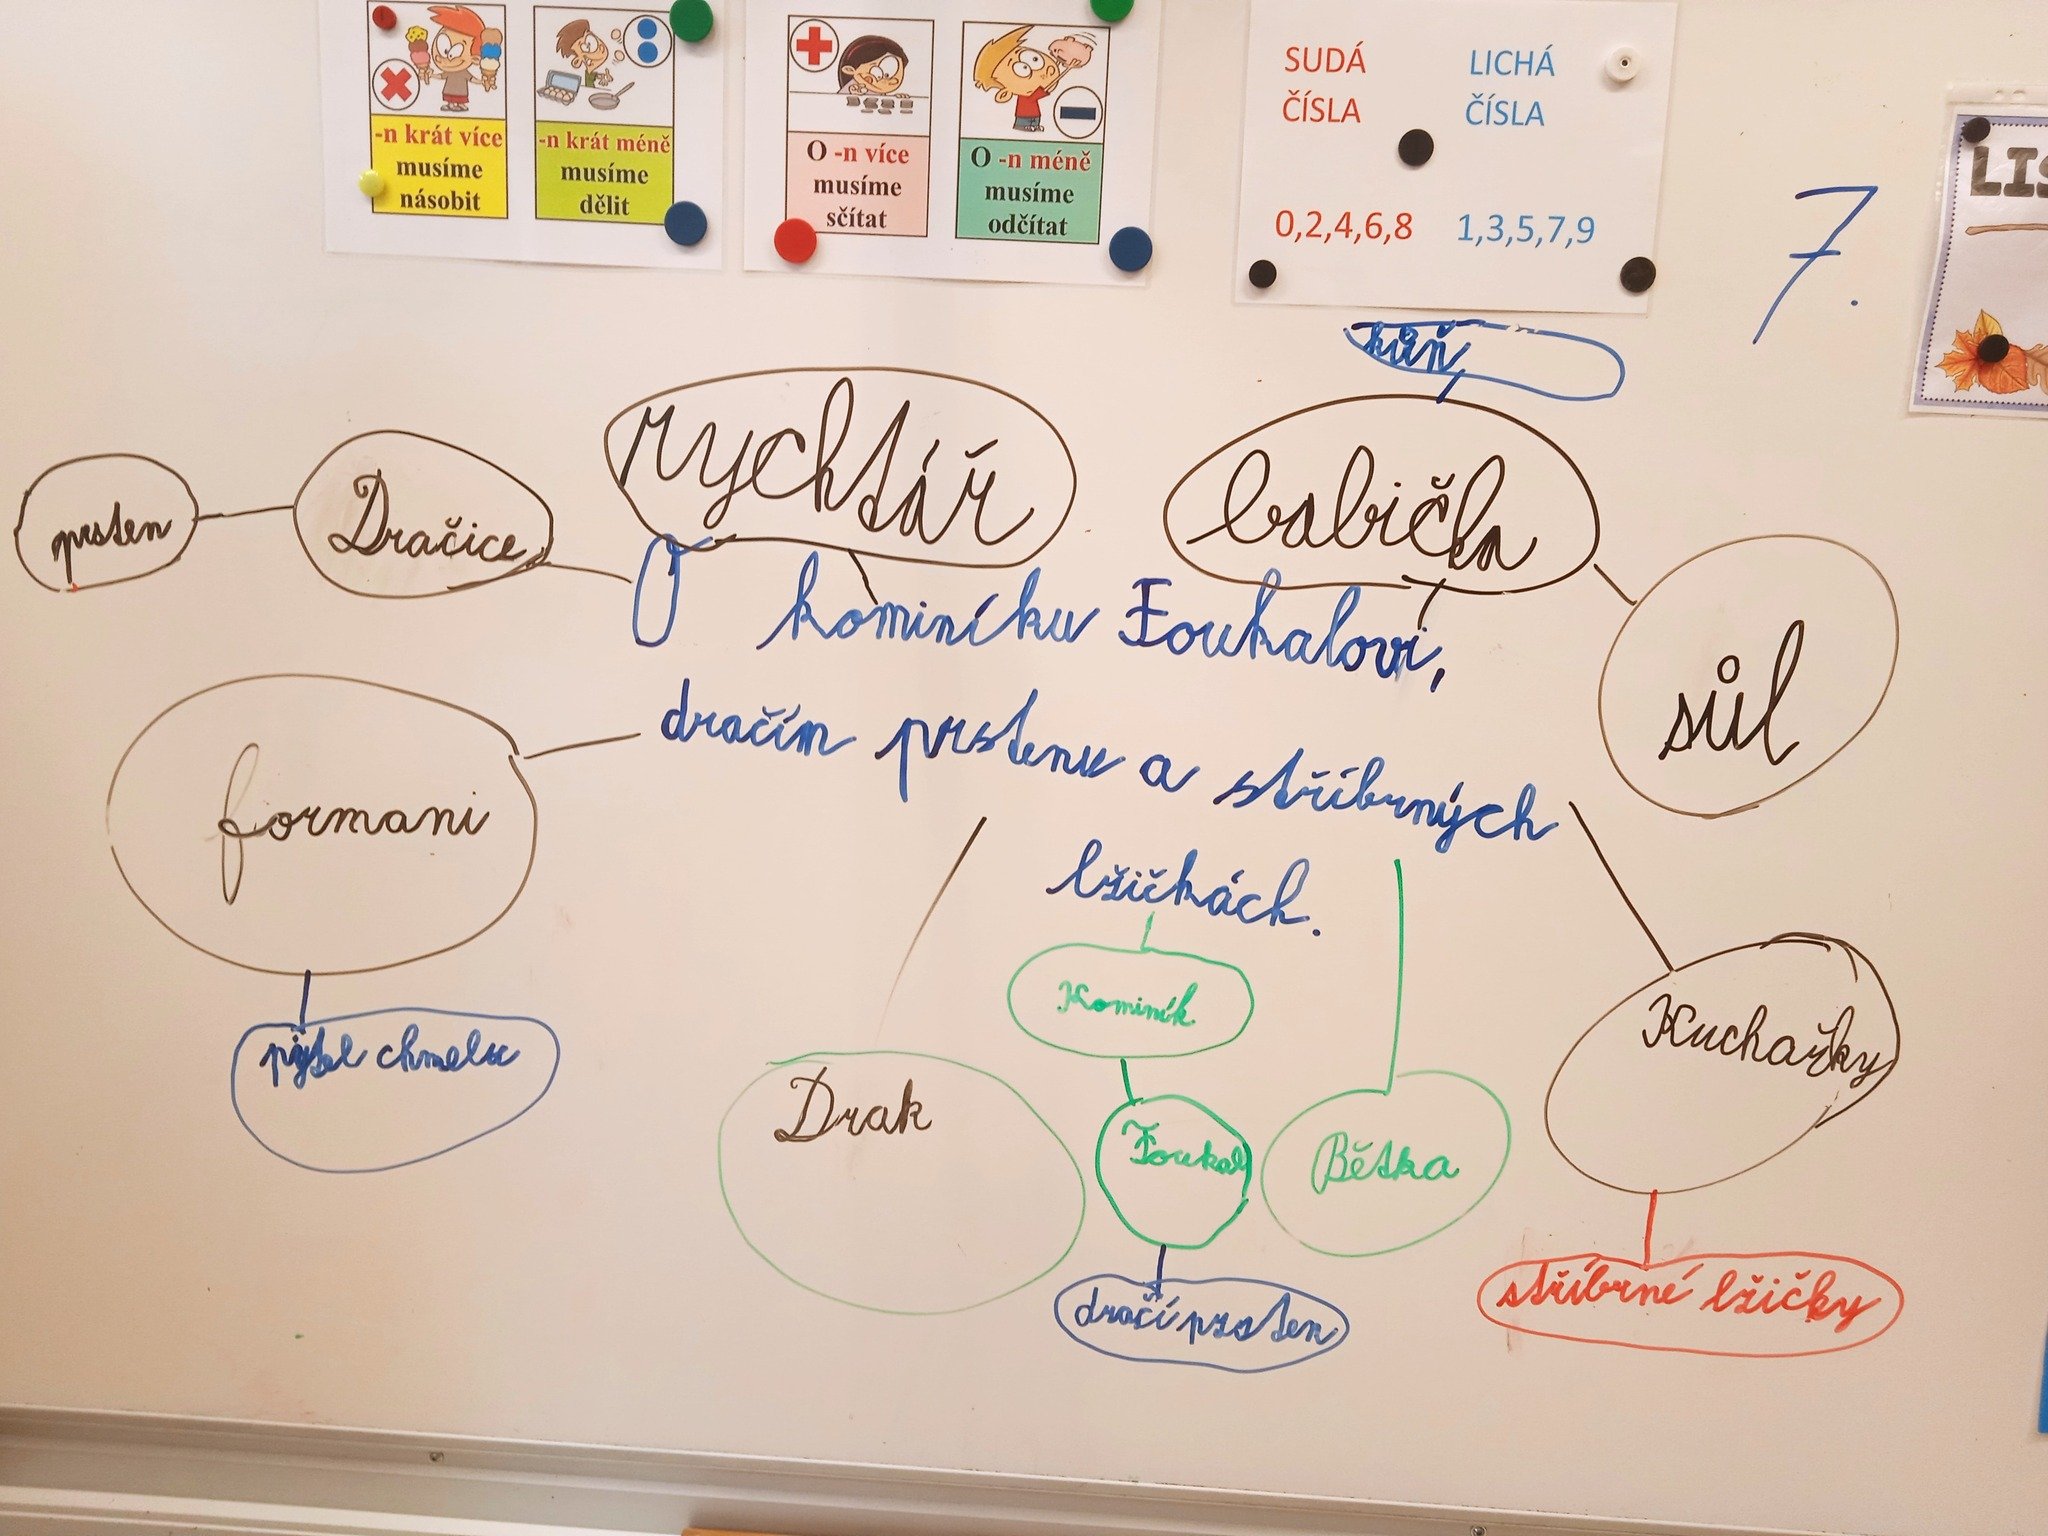 -n krát více
musíme
násobit
-n krát méně
musíme
dělit
O -n více
musíme
sčítat
O -n méně
musíme
odčítat
SUDÁ
ČÍSLA
0,2,4,6,8
LICHÁ
ČÍSLA
1,3,5,7,9
LIS
7.
kůň
rychtář
babička
prsten
Dračice
sůl
O kominíku Foukalovi,
dračím prstenu a stříbrných
lžičkách.
formani
pytel chmelu
Drak
Kominík
Foukal
dračí prsten
Bětka
Kuchařky
stříbrné lžičky